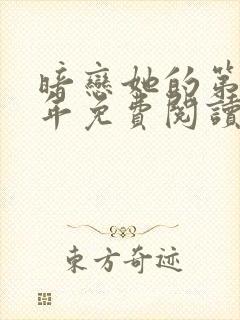 暗戀她的第
年免費閱讀
東方奇迹